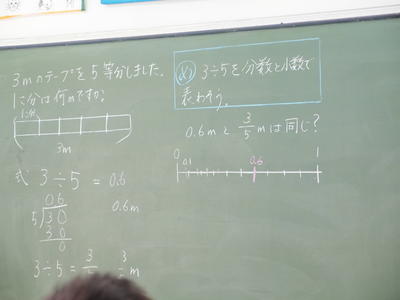 3mのテープを5等分しました。
1こ分は何mですか?
1こ分
3m
式 3÷5 = 0.6
0.6m
0 6
5 3 0
3 0
0
3÷5 = 3 3 m
め 3÷5を分数と小数で
表わそう。
0.6mと 3/5 mは同じ?
0 0.1 0.6 1